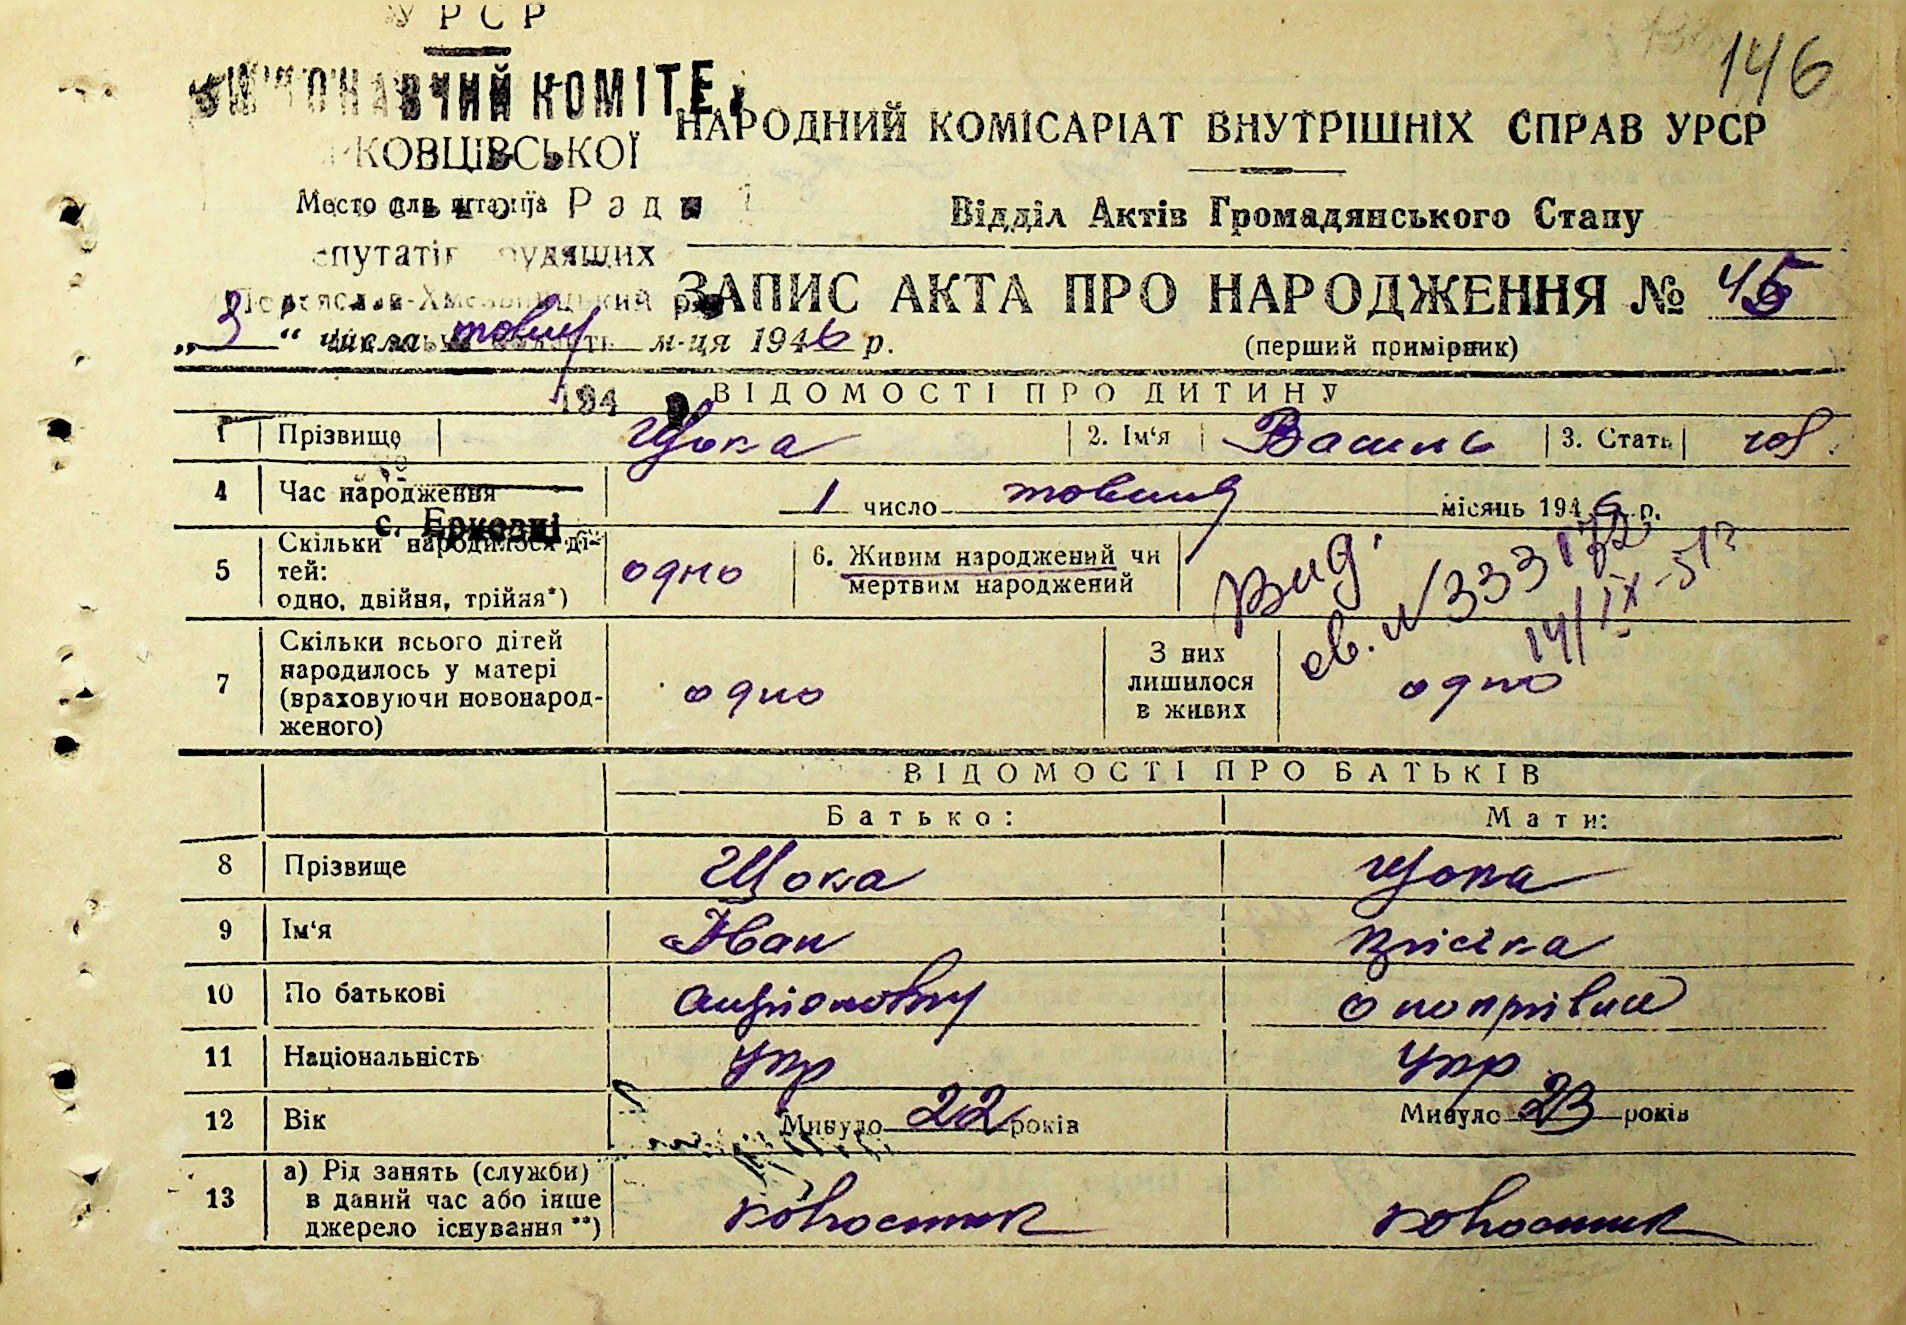 УРСР
146
ВИКОНАВЧИЙ КОМІТЕ
НАРОДНИЙ КОМІСАРІАТ ВНУТРІШНІХ СПРАВ УРСР
КОВЦІВСЬКОЇ
Место для штампа
Ради
Відділ Актів Громадянського Стану
епутатів рудящих
ЗАПИС АКТА ПРО НАРОДЖЕННЯ № 45
Переяслав-Хмельницький р
„3“ числа жовтн м-ця 1946 р.
(перший примірник)
194
ВІДОМОСТІ ПРО ДИТИНУ
1 Прізвище Щока 2. Ім‘я Василь 3. Стать чол.
4 Час народження 1 число жовтня місяць 1946 р.
с. Єрковці
5 Скільки народилося ді-
тей:
одно, двійня, трійня*)
одно
6. Живим народжений чи
мертвим народжений
Вид.
св. №333172
14/IX-51?
7 Скільки всього дітей
народилось у матері
(враховуючи новонарод-
женого)
одно
З них
лишилося
в живих
одно
ВІДОМОСТІ ПРО БАТЬКІВ
Батько: Мати:
8 Прізвище Щока Щока
9 Ім‘я Іван
10 По батькові
11 Національність Укр Укр
12 Вік Минуло 22 років Минуло 23 років
13 а) Рід занять (служби)
в даний час або інше
джерело існування**)
колхосник колхосник